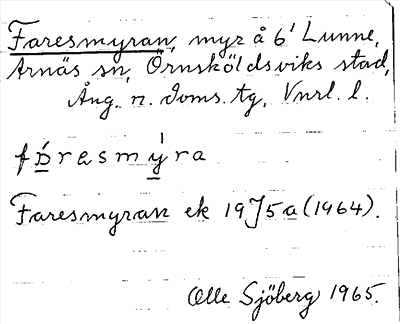 Faresmyran, myr å 6¹ Lunne,
Arnäs sn, Örnsköldsviks stad,
Ång. n. doms. tg, Vnrl. l.
fòresmýra
Faresmyran ek 19J5a (1964).
Olle Sjöberg 1965.